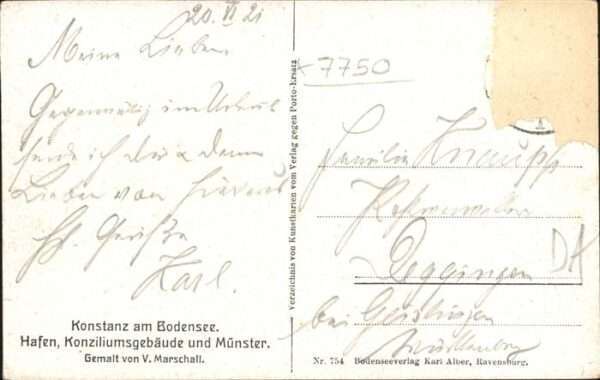 20. VI 21
Meine Lieben
Gegenwärtig im Urlaub
sende ich dir & deinen
Lieben von hier aus
hl. Grüße
Karl.
Konstanz am Bodensee.
Hafen, Konziliumsgebäude und Münster.
Gemalt von V. Marschall.
Verzeichnis von Kunstkarten vom Verlag gegen Porto-Ersatz
7750
Familie Knaupp
Deggingen
DH
bei Geislingen
Württemberg
Nr. 754 Bodenseeverlag Karl Alber, Ravensburg.